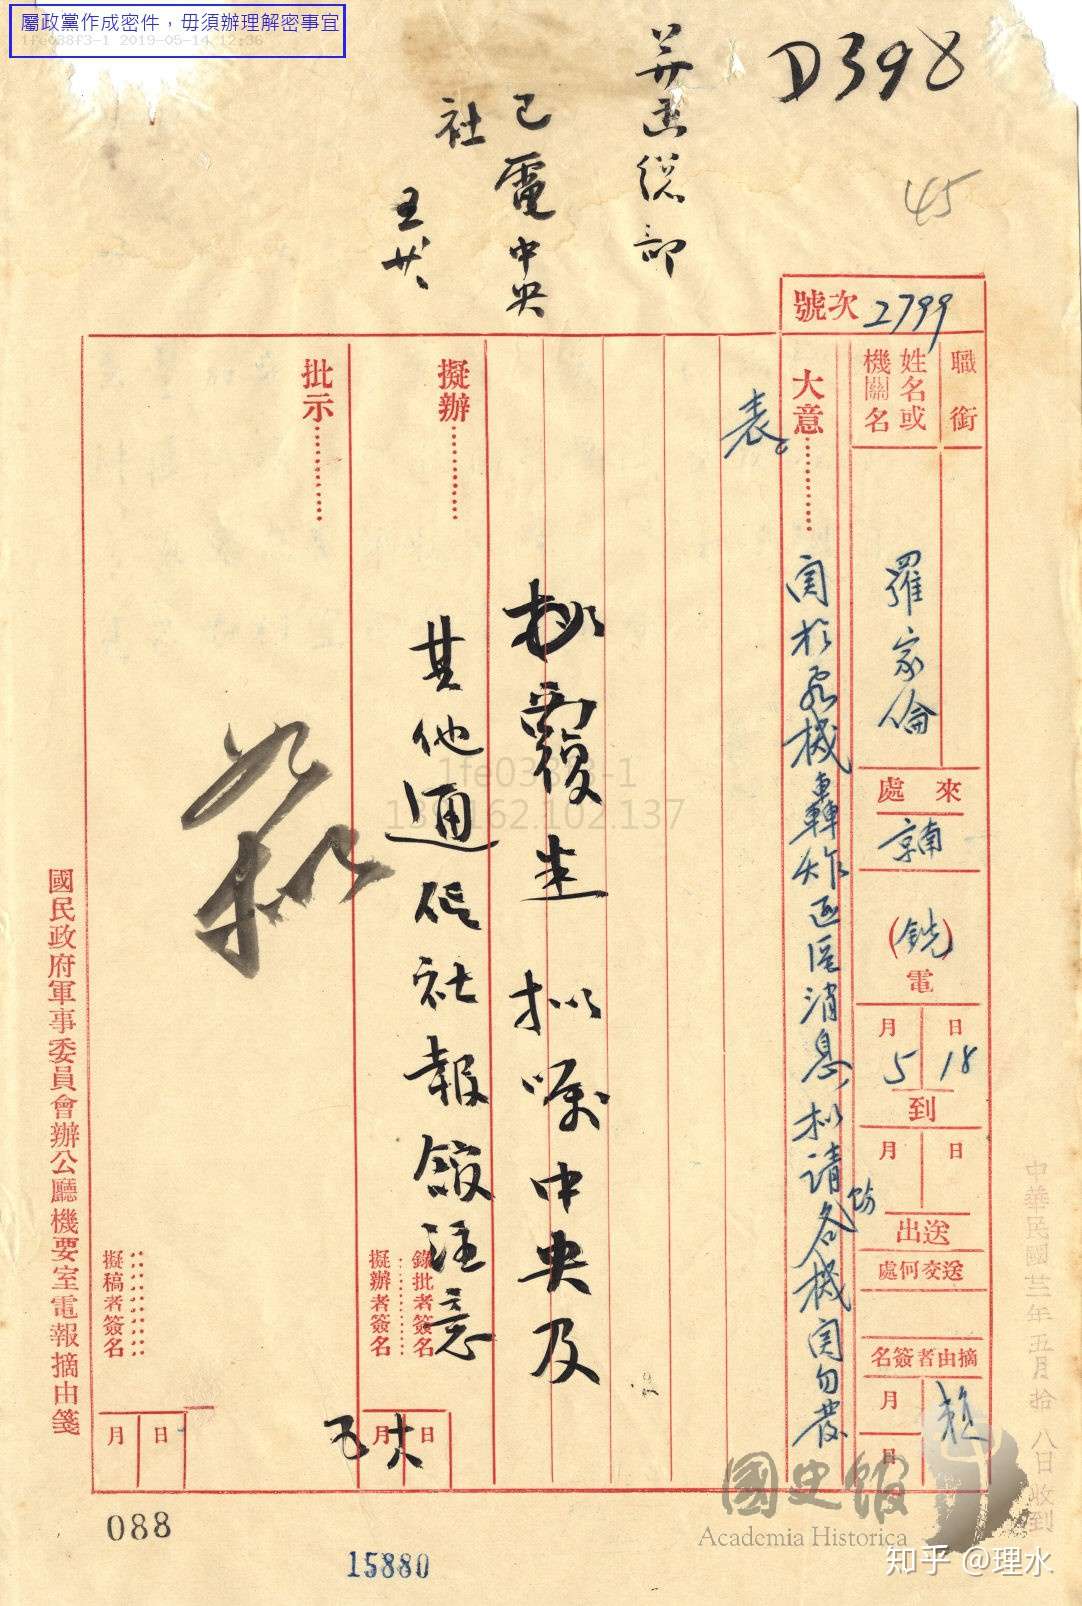 屬政黨作成密件，毋須辦理解密事宜
1fe038f3-1 2019-05-14 12:36
D398
45
並函總部
已電中央
社
號次 2799
職銜
姓名或
機關名
羅家倫
來處
京南
(銑)電
5月18日
到
月 日
送出
送交何處
摘由者簽名
月 日
大意
關於飛機轟炸匪區消息，擬請飭各機關勿發
表。
擬辦
擬覆 擬囑中央及
其他通信社報館注意
錄批者簽名
擬辦者簽名
月 日
批示
如擬
擬稿者簽名
月 日
國民政府軍事委員會辦公廳機要室電報摘由箋
中華民國 年五月拾八日收到
1fe038f3-1
162.102.137
088
15880
國史館
Academia Historica
知乎 @理水